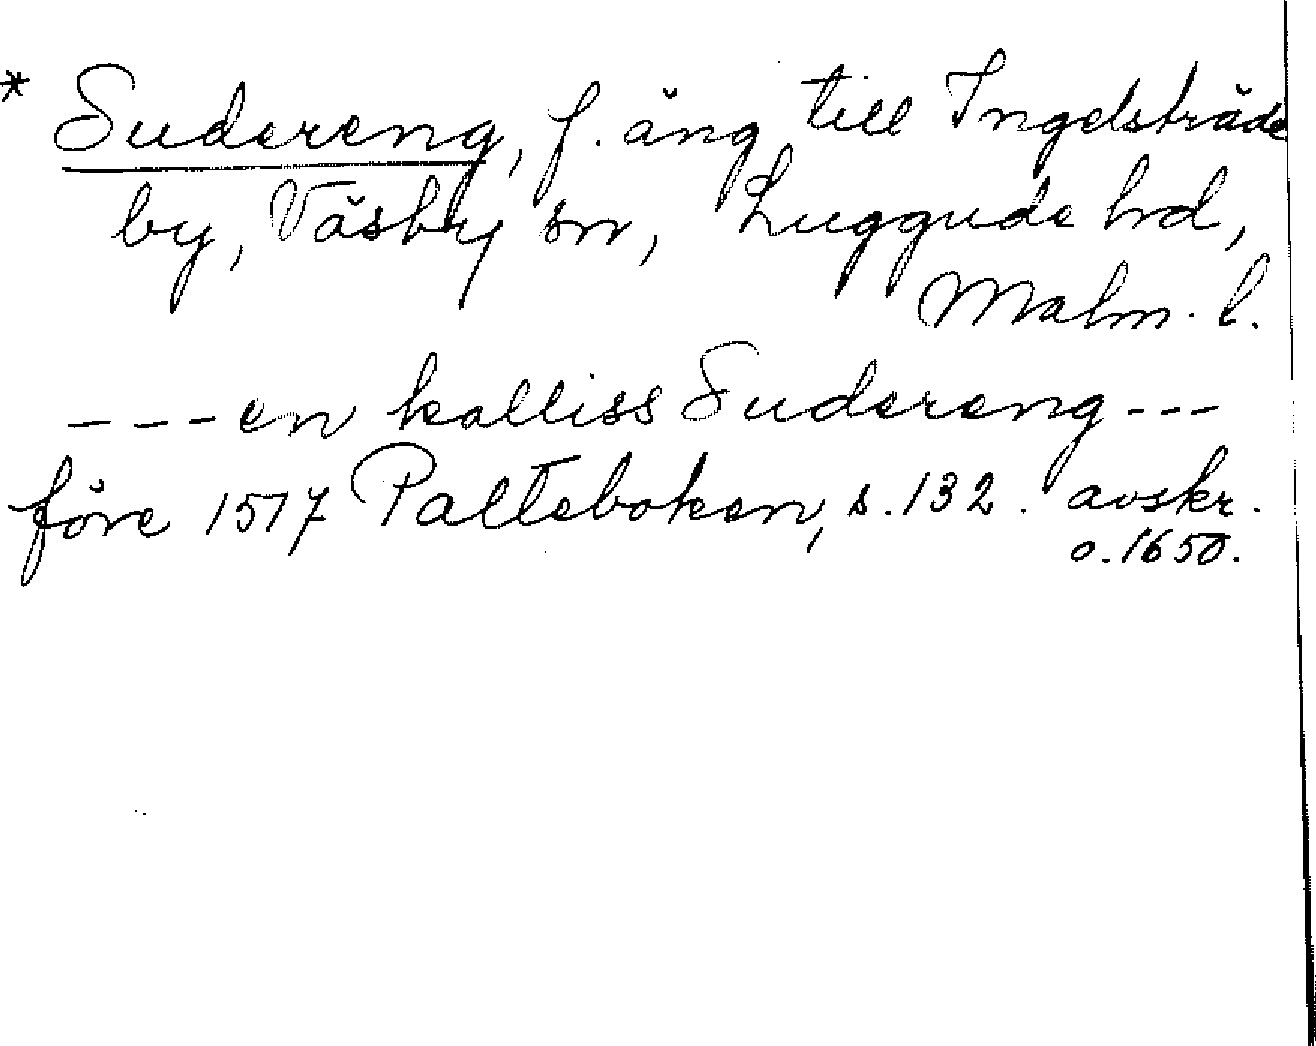 * Sudereng, f. äng till Ingelsträde
by, Väsby sn, Luggude hd,
Malm. l.
---en kalliss Sudereng---
före 1517 Palteboken, s. 132. avskr.
o. 1650.